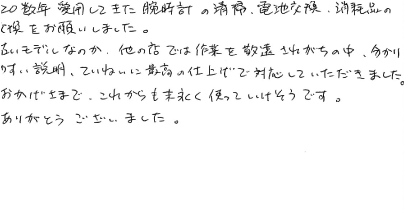 20数年愛用してきた腕時計の清掃、電池交換、消耗品の
交換をお願いしました。
古いモデルなのか、他の店では作業を敬遠されがちの中、分かり
やすい説明、ていねいに最高の仕上げで対応していただきました。
おかげさまで、これからも末永く使っていけそうです。
ありがとうございました。